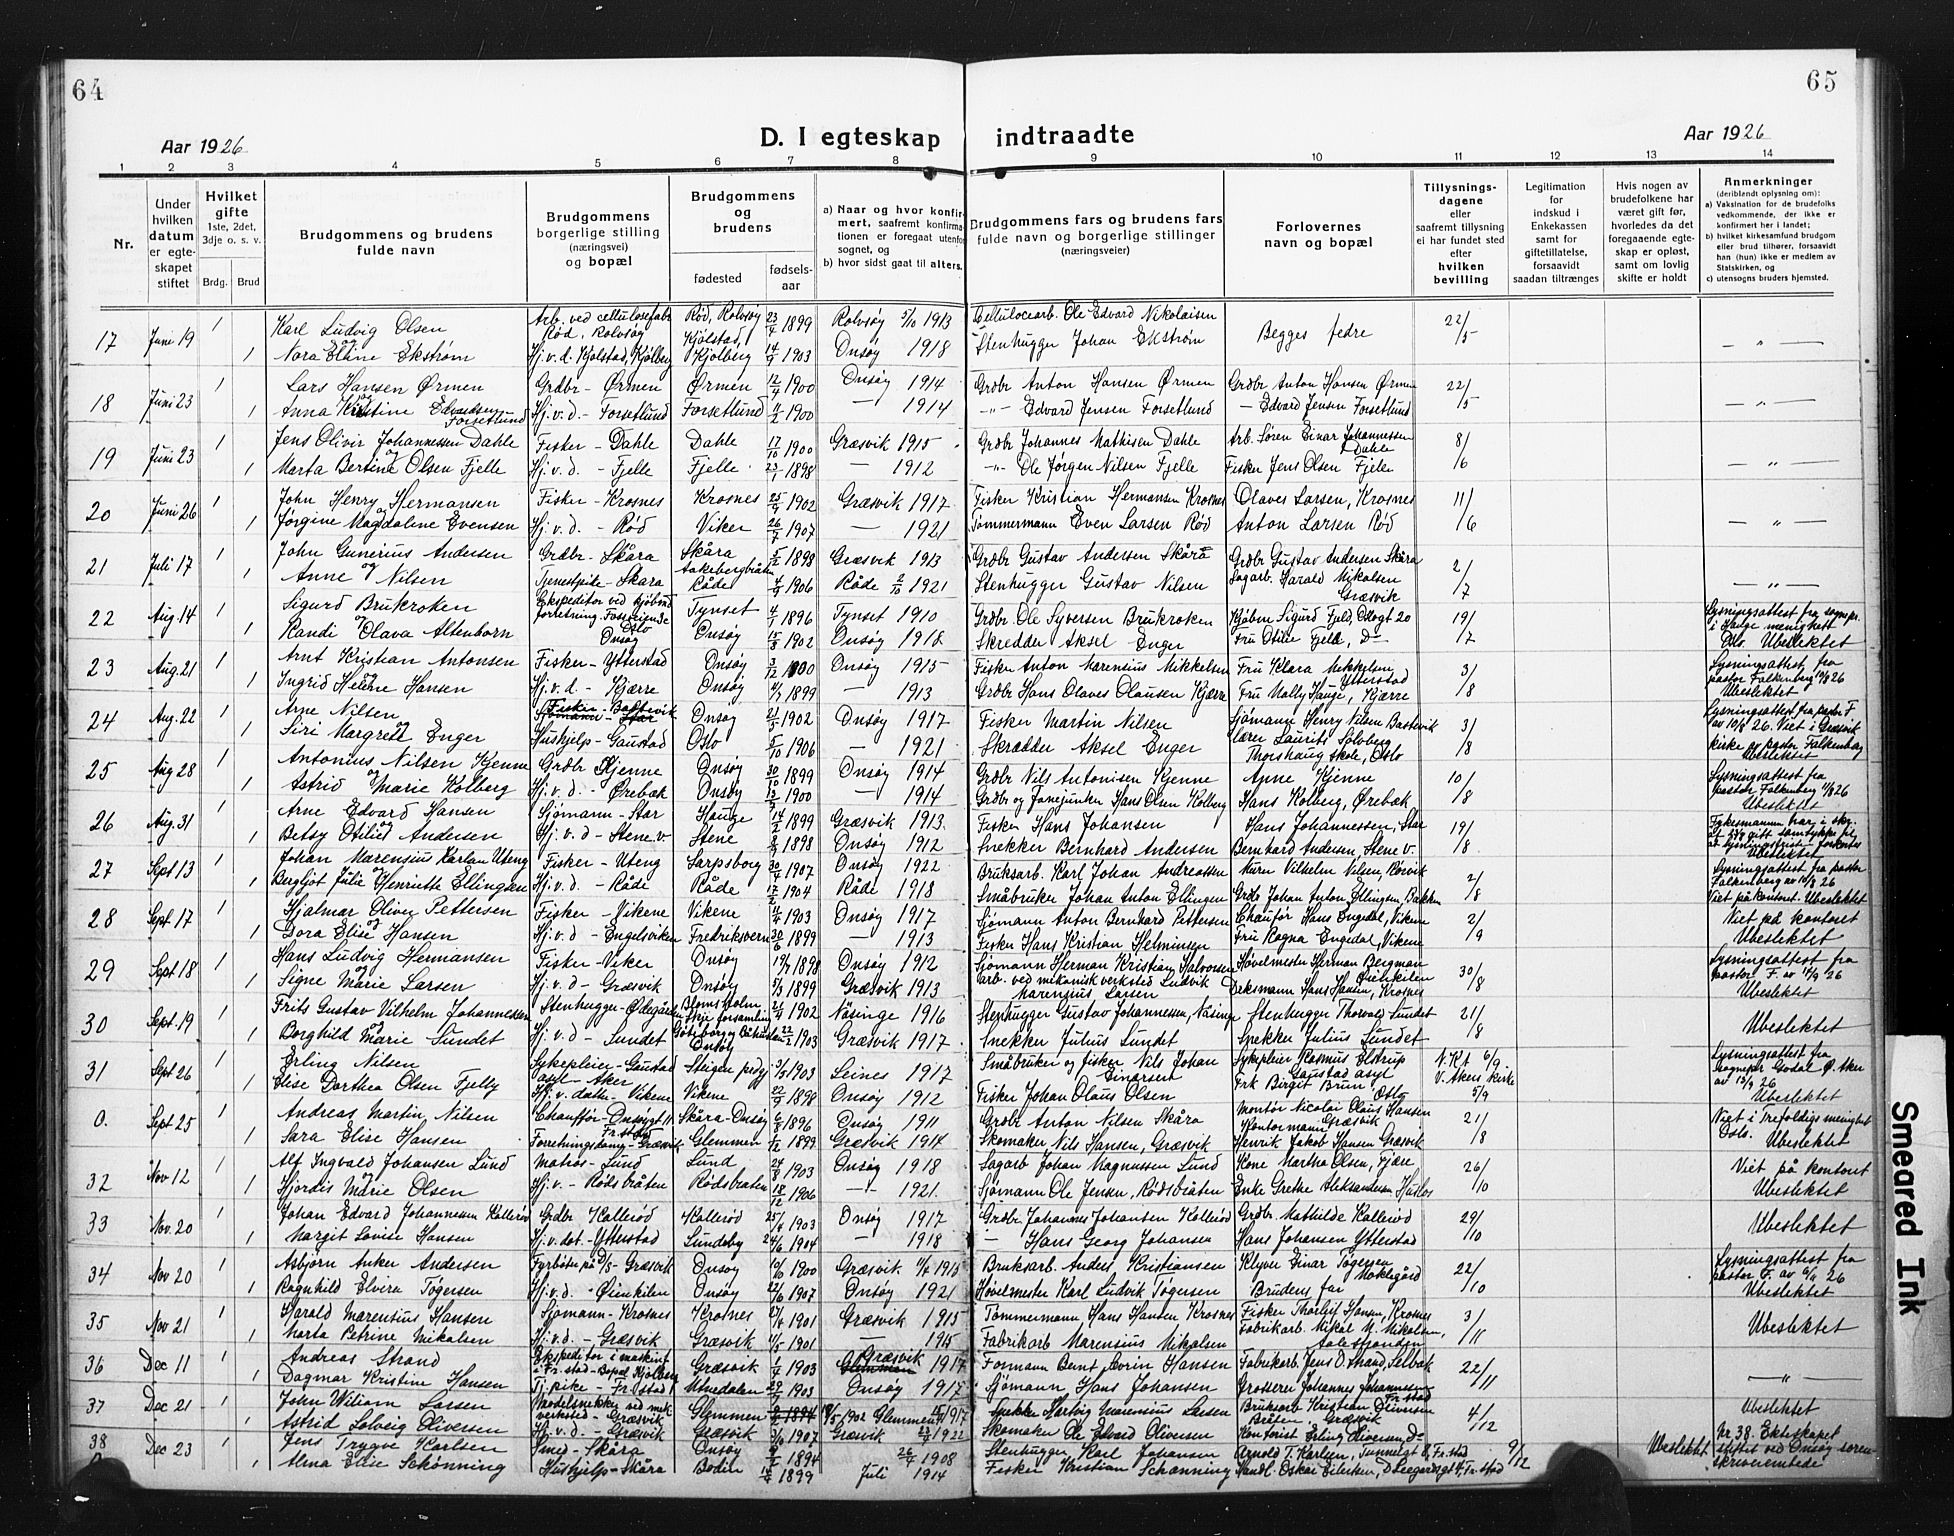 64
65
Aar 1926
D. I egteskap indtraadte
Aar 1926
1 2 3 4 5 6 7 8 9 10 11 12 13 14
Nr.
Under hvilken datum er egteskapet stiftet
Hvilket gifte 1ste, 2det, 3dje o. s. v.
Brdg. Brud
Brudgommens og brudens fulde navn
Brudgommens borgerlige stilling (næringsvei) og bopæl
Brudgommens og brudens
fødested
fødselsaar
a) Naar og hvor konfirmert, saafremt konfirmationen er foregaat utenfor sognet, og
b) hvor sidst gaat til alters.
Brudgommens fars og brudens fars fulde navn og borgerlige stillinger (næringsveier)
Forlovernes navn og bopæl
Tillysningsdagene eller saafremt tillysning ei har fundet sted efter hvilken bevilling
Legitimation for indskud i Enkekassen samt for giftetillatelse, forsaavidt saadan tiltrænges
Hvis nogen av brudefolkene har været gift før, hvorledes da det foregaaende egteskap er opløst, samt om lovlig skifte er holdt
Anmerkninger
(deriblandt oplysning om):
a) Vaksination for de brudefolks vedkommende, der ikke er konfirmert her i landet;
b) hvilket kirkesamfund brudgom eller brud tilhører, forsaavidt han (hun) ikke er medlem av Statskirken, og
c) utensogns bruders hjemsted.
17 Juni 19 1 Karl Ludvig Olsen Arb. ved cellulosefabr. Rød, Rolvsøy Rød, Rolvsøy 23/4 1899 Rolvsøy 5/10 1913 Cellulocearb. Ole Edvard Nikolaisen Begges fedre 22/5
og
1 Nora Eline Ekstrøm Hj.v.d. Kjølstad, Kjølberg Kjølstad, Kjølberg 14/9 1903 Onsøy 1918 Stenhugger Johan Ekstrøm — " —
18 Juni 23 1 Lars Hansen Ørmen Grdbr - Ørmen Ørmen 12/4 1900 Onsøy 1914 Grdbr Anton Hansen Ørmen Grdbr Anton Hansen Ørmen 22/5
1 Anna Kristine Edvardsen Forsetlund Hj.v.d - Forsetlund Forsetlund 1900 — 1914 -"- Edvard Jensen Forsetlund - Edvard Jensen Forsetlund — " —
19 Juni 23 1 Jens Olivir Johannessen Dahle Fisker - Dahle Dahle 17/10 1900 Græsvik 1915 Grdbr Johannes Mathisen Dahle Arb. Søren Einar Johannessen Dahle 8/6
og
1 Marta Bertine Olsen Fjelle Hj.v.d. - Fjelle Fjelle 23/1 1898 — 1912 -"- Ole Jørgen Nilsen Fjelle Fisker Jens Olsen Fjele — " —
20 Juni 26 1 John Henry Hermansen Fisker - Krosnes Krosnes 25/9 1902 Græsvik 1917 Fisker Kristian Hermansen Krosnes Olaves Larsen, Krosnes 11/6
og
1 Jørgine Magdalene Evensen Hj.v.d. - Rød Viker 26/7 1907 — 1921 Tømmermann Even Larsen Rød Anton Larsen Rød — " —
21 Juli 17 1 John Gunerius Andersen Grdbr - Skåra Skåra 5/2 1898 Græsvik 1913 Grdbr Gustav Andersen Skåra Grdbr Gustav Andersen Skåra 2/7
og
1 Anne Nilsen Tjenestpike - Skara Råde 4/9 1906 Råde 2/10 1921 Stenhugger Gustav Nilsen Sagarb. Harald Mikalsen Græsvik — " —
22 Aug. 14 1 Sigurd Brukroken Ekspeditor ved kjøbmd forretning - Oslo Tynset 4/1 1896 Tynset 1910 Grdbr. Ole Syversen Brukroken Kjøbm Sigurd Fjeld, 20 19/7 Lysningsattest fra sognepr. i menighet
og
1 Randi Olava Altenborn Onsøy Onsøy 15/3 1902 Onsøy 1918 Skredder Aksel Enger Fru Otilie Fjeld, Do Oslo. Ubeslektet
23 Aug. 21 1 Arnt Kristian Antonsen Fisker - Ytterstad Onsøy 3/12 1900 Onsøy 1915 Fisker Anton Marensius Mikkelsen Fru Klara Mikkelsen, Ytterstad 3/8 Lysningsattest fra pastor Falkenberg 14/8 26
og
1 Ingrid Helene Hansen Hj.v.d. - Kjærre Onsøy 1899 — 1913 Grdbr Hans Olaves Olausen Kjærre Fru Hauge, Kjærre Ubeslektet
24 Aug. 22 1 Arne Nilsen Fisker - Bastevik Onsøy 21/5 1902 Onsøy 1917 Fisker Martin Nilsen Sjømann Henry Nilsen Bastevik 3/8 Lysningsattest fra pastor F av 10/8 26. Viet i Græsvik
og
1 Siri Margrett Enger Hushjelp - Gaustad Oslo 5/10 1906 — 1921 Skrædder Aksel Enger lærer Laurits Solberg Thorshaug skole, Oslo kirke av pastor Falkenberg Ubeslektet
25 Aug 28 1 Antonius Nilsen Kjenne Grdbr Kjenne Onsøy 30/10 1899 Onsøy 1914 Grdbr Nils Antonisen Kjenne Arne Kjenne 10/8 Lysningsattest fra pastor Falkenberg 11/8 26
og
1 Astrid Marie Kolberg Hj.v.d. - Ørebæk Onsøy 1900 — 1914 Grdbr og Fanejunker Hans Olsen Kolberg Hans Kolberg, Ørebæk Ubeslektet
26 Aug. 31 1 Arne Edvard Hansen Sjømann - Star Hauge 14/2 1899 Græsvik 1913 Fisker Hans Johansen Hans Johannessen, Star 19/8 Fylkesmannen har i skr. av 25/8 gitt samtykke til at lysningsfrist forkortes
og
1 Betsy Otilie Andersen Hj.v.d - Stene v. Stene 1898 Onsøy 1912 Snekker Bernhard Andersen Bernhard Andersen, Stene v. Ubeslektet
27 Sept 13 1 Johan Marensius Karlsen Uteng Fisker - Uteng Sarpsborg 30/4 1907 Onsøy 1922 Bruksarb. Karl Johan Andreassen Murer Vilhelm Nilsen, Rørvik 2/8 Lysningsattest fra pastor Falkenberg av 10/8 26
og
1 Bergljot Julie Henriette Ellingsen Hj.v.d. - Råde Råde 17/2 1904 Råde 1918 Småbruker Johan Anton Ellingsen Grdbr Johan Anton Ellingsen, Bakken Viet på kontoret. Ubeslektet
28 Sept. 17 1 Hjalmar Oliver Pettersen Fisker - Vikene Vikene 1903 Onsøy 1917 Sjømann Anton Bernhard Pettersen Chaufør Hans Engdal, Vikene 2/9 Viet på kontoret
og
1 Dora Elise Hansen Hj.v.d - Engelsviken Fredriksvern 30/6 1899 — 1913 Fisker Hans Kristian Helminsen Fru Ragna Engedal, Vikene Ubeslektet
29 Sept 18 1 Hans Ludvig Hermansen Fisker - Viker Onsøy 19/7 1898 Onsøy 1912 Sjømann Herman Kristian Halvorsen Høvelmester Herman Bergman Øienkilen 30/8 Lysningsattest fra pastor F. av 14/9 26
og
1 Signe Marie Larsen Hj.v.d - Græsvik Onsøy 1899 Græsvik 1913 arb. ved mekanisk verksted Ludvik Marensius Larsen Dæksmann Hans Hansen, Krosnes Ubeslektet
30 Sept. 19 1 Frits Gustav Vilhelm Johannessen Stenhugger - Ødegården Blomsholm Skje forsamlin Göteborg og Bohuslän 21/4 1902 Näsinge 1916 Stenhugger Gustav Johannessen, Näsinge Stenhugger Thorvald Sundet 21/8
og
1 Borghild Marie Sundet Hj.v.d - Sundet Onsøy 22/2 1903 Græsvik 1917 Snekker Julius Sundet Snekker Julius Sundet Ubeslektet
31 Sept 26 1 Erling Nilsen Sykepleier - Gaustad asyl - Aker Steigen prgj. 1903 Leines 1917 Småbruker og fisker Nils Johan Einarsen Sykepleier Rasmus Elstrup Gaustad asyl N. Kt 6/9 V. Akers kirke 5/9 Lysningsattest fra sognepr Godal V. Aker av 13/9 26
1 Elise Dorthea Olsen Fjelly Hj.v. datter - Vikene Vikene 22/9 1898 Onsøy 1912 Fisker Johan Olaus Olsen Frk Birgit Brun, Oslo Ubeslektet
0. Sept 25 1 Andreas Martin Nilsen Chauffør - Onsøygt 11 Fr.stad Skåra - Onsøy 6/8 1896 Onsøy 1911 Grdbr. Anton Nilsen Skåra Montør Nicolai Olaus Hansen Græsvik 21/8 Viet i Trefoldigh.menighet Oslo.
1 Sara Elise Hansen Forretningsdame - Græsvik Glemmen 1/12 1899 Græsvik 1914 Skomaker Nils Hansen, Græsvik Kontormann Henrik Jakob Hansen Græsvik Ubeslektet
32 Nov 12 1 Alf Ingvald Johansen Lund Matros - Lund Lund 24/8 1903 Onsøy 1918 Sagarb Johan Magnussen Lund Kone Martha Olsen, Fjære 26/10 Viet på kontoret
1 Hjørdis Marie Olsen Hj.v. - Rødsbråten Rødsbraten 18/12 1906 -"- 1921. Sjømann Ole Jensen, Rødsbråten Enke Grethe Aleksandersen Huslos Ubeslektet
33 Nov. 20 1 Johan Edvard Johannessen Kallerød Grdbr Kallerød Kallerød 25/4 1903 Onsøy 1917 Grdbr. Johannes Johansen Kallerød Grdbr. Mathilde Kallerød 29/10
1 Margit Lovise Hansen Hj.v.dat - Ytterstad Lundeby 24/6 1904 — 1918 — Hans Georg Johansen Hans Johansen Ytterstad Ubeslektet
34 Nov 20 1 Asbjørn Anker Andersen Fyrbøter på D/S - Græsvik Onsøy 10/10 1900 Græsvik 1915 Bruksarb. Anders Kristiansen Klyver Einar Tøgersen Moklegård 22/10 Lysningsattest fra pastor F. av 6/11 26
1 Ragnhild Elvira Tøgersen Hj.v.d. - Øienkilen Onsøy 22/6 1907 Onsøy 1921 Høvelmester Karl Ludvik Tøgersen Brudens far Ubeslektet
35 Nov 21 1 Harald Marentius Hansen Sjømann - Krosnes Krosnes 27/4 1901 Græsvik 1915 Tømmermann Hans Hansen Krosnes Fisker Thorleif Hansen, Krosnes 3/11
1 Marta Petrine Mikalsen Hj.v.d. - Græsvik Græsvik 1901 — 1915 Fabrikarb Marensius Mikalsen Fabrikarb. Mikal M. Mikalsen, Ubeslektet
36 Dec 11 1 Andreas Strand Ekspeditor i maskinf. i Fr.stad - Bopæl Kjølberg Græsvik 1/4 1903 Græsvik 1917 Formann Bernt Severin Hansen Fabrikarb. Jens O. Strand, Selbak 22/11
1 Dagmar Kristine Hansen Tj.pike - Fr.stad Utvedalen 29/7 1903 Onsøy 1917 Sjømann Hans Johansen Grosserer Johannes Johannesen Fr.stad — " —
37 Dec 21 1 John Wiliam Larsen Modelsnekker ved mek verksted - Græsvik Glemmen 1902 Glemmen 1917 Snekker Hartvig Marensius Larsen Bruksarb Kristian Oliversen Bråten - Græsvik 4/12 Ubeslektet
1 Astrid Solveig Oliversen Hj.v.d. - Græsvik Græsvik 3/10 1907 Græsvik 1922 Skomaker Ole Edvard Oliversen Kontorist Erling Oliversen, Do
38 Dec 23 1 Jens Trygve Karlsen Smed - Skåra Onsøy 1894 26/4 1908 Stenhugger Karl Johansen Arnold T. Karlsen, Tunnelgt 8, Fr.stad 9/12 Ubeslektet Nr. 38. Ekteskapet stiftet ved Onsøy sorenskriverembede
1 Alma Elise Schønning Hushjelp - Skåra Bodin 1899 Juli 1914 Fisker Kristian Schønning Handl. Oskar Eilertsen, Fr.stad
Smeared Ink